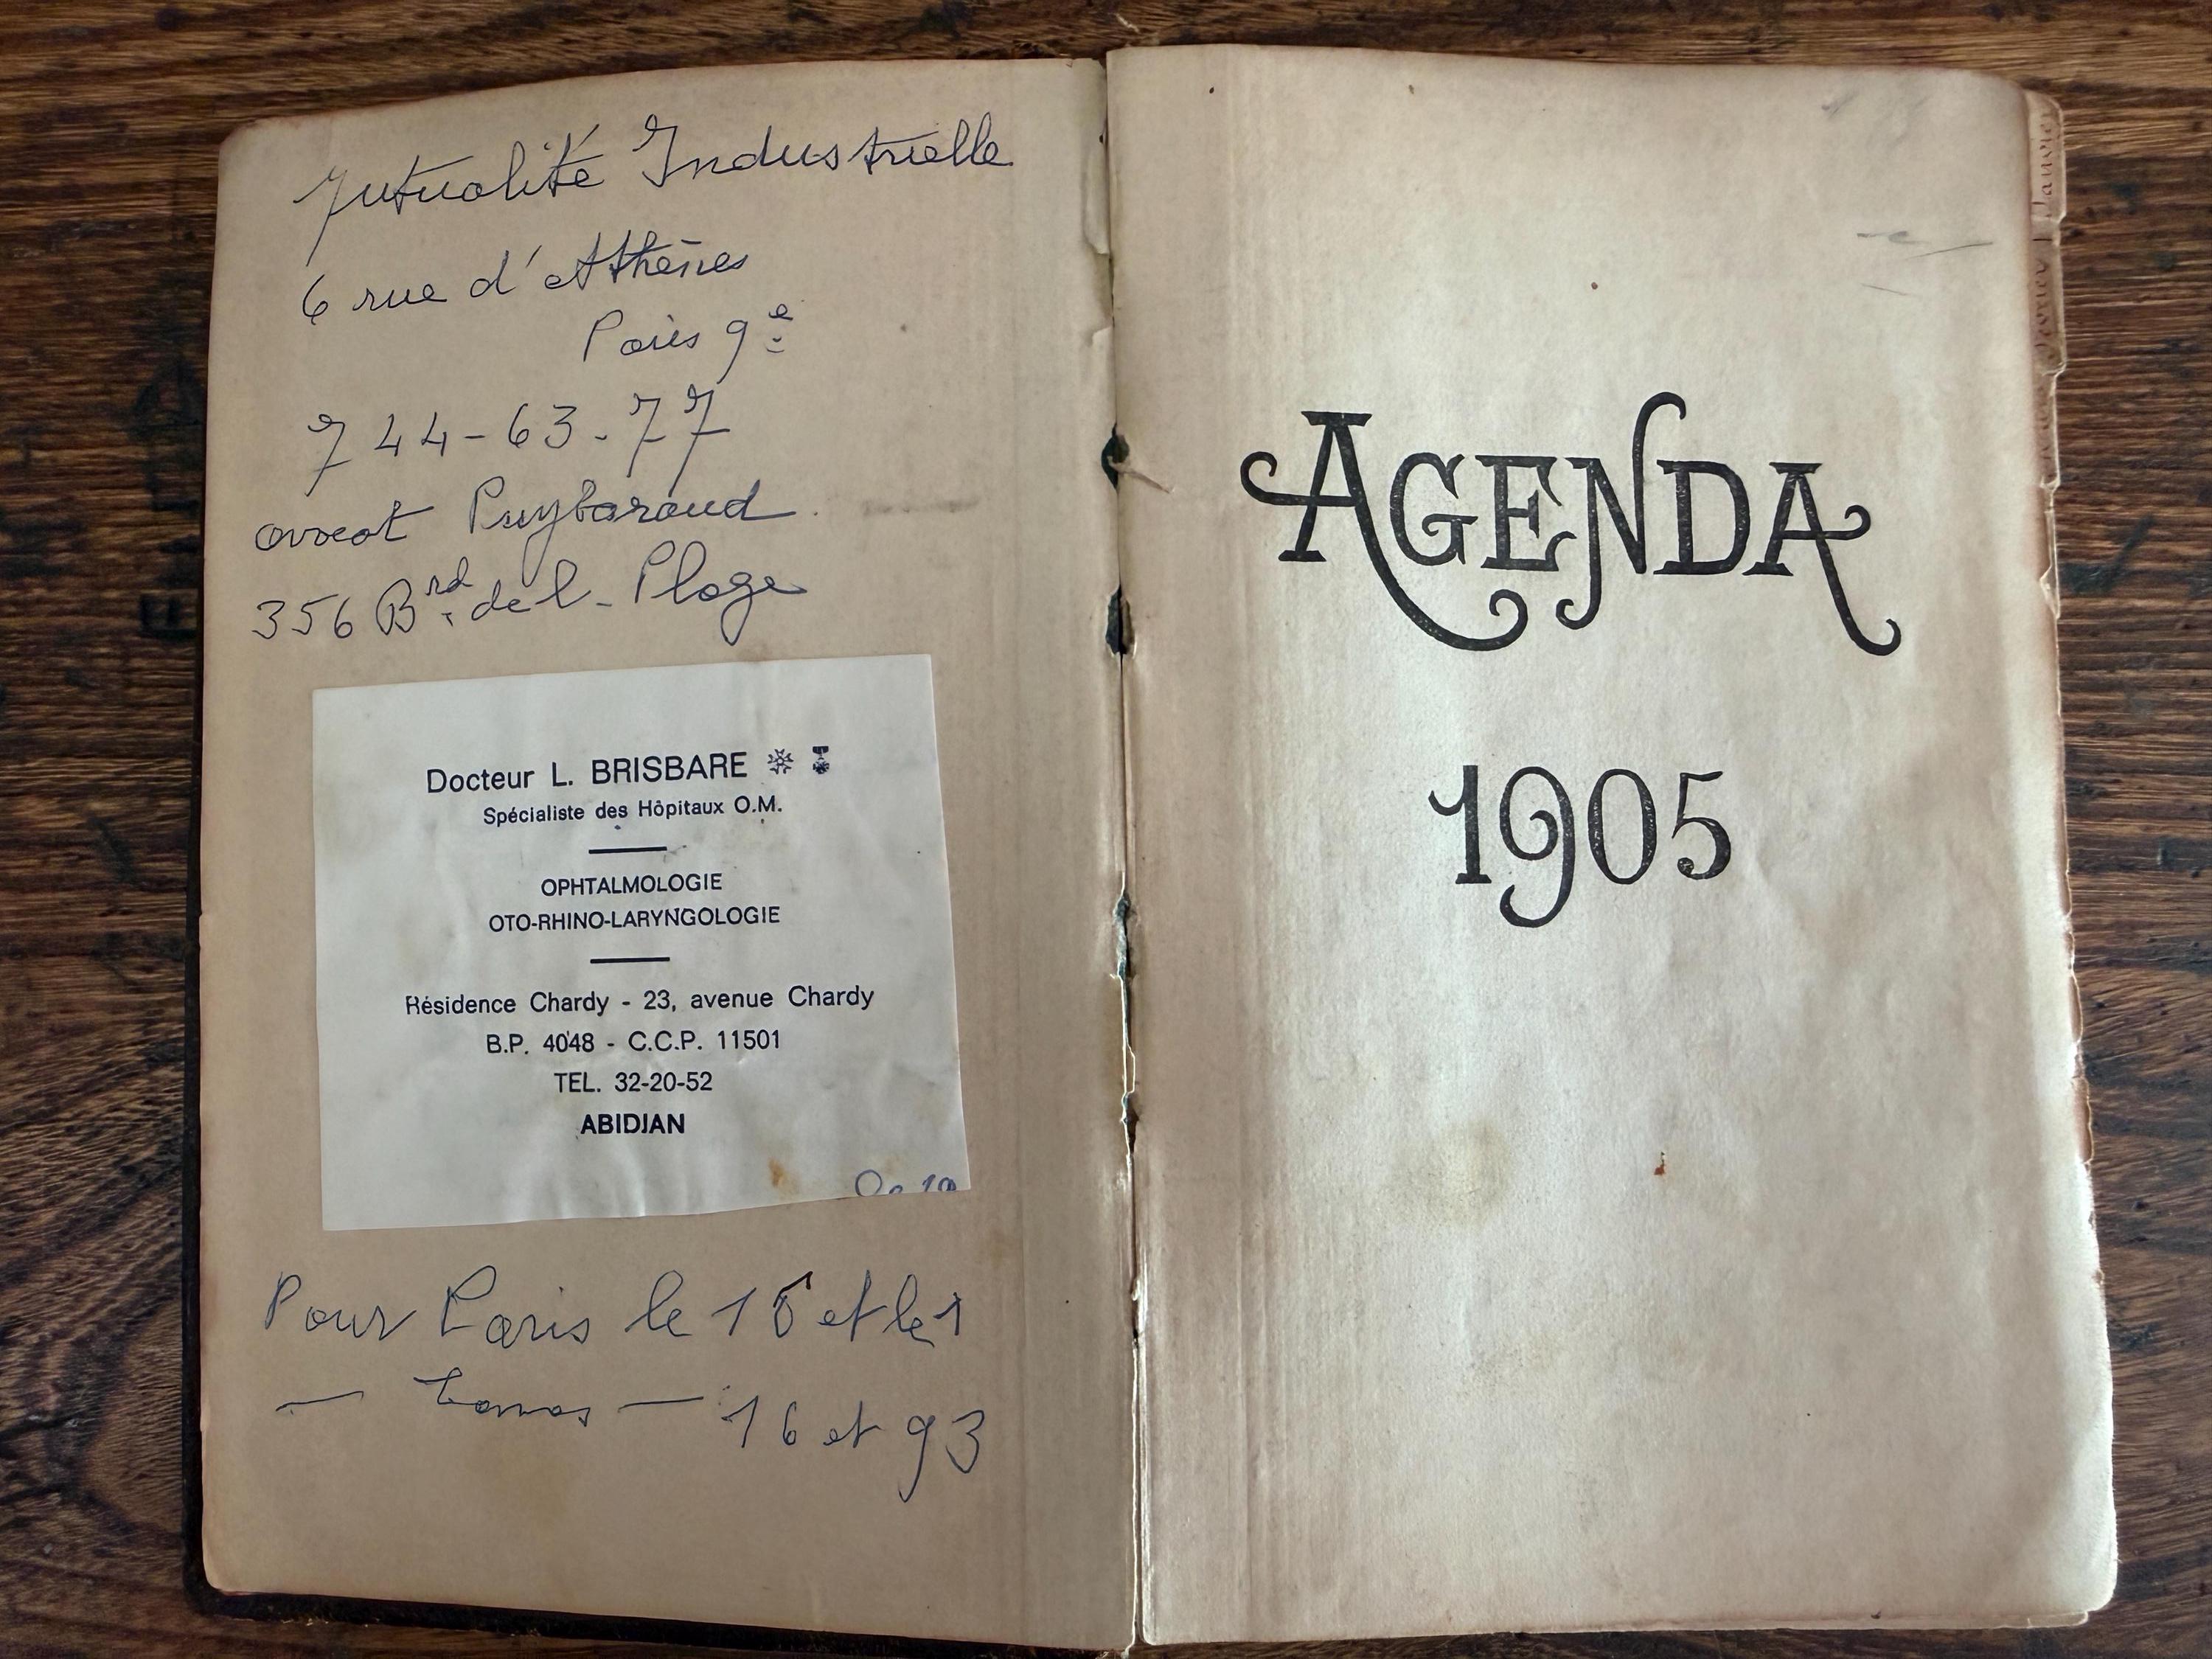 Mutualité Industrielle
6 rue d'Athènes
Paris 9e
744-63-77
avocat Puybaraud
356 Brd. de l- Plage
Docteur L. BRISBARE
Spécialiste des Hôpitaux O.M.
OPHTALMOLOGIE
OTO-RHINO-LARYNGOLOGIE
Résidence Chardy - 23, avenue Chardy
B.P. 4048 - C.C.P. 11501
TEL. 32-20-52
ABIDJAN
Pour Paris le 16 et le 1
16 et 93
AGENDA
1905
Janvier